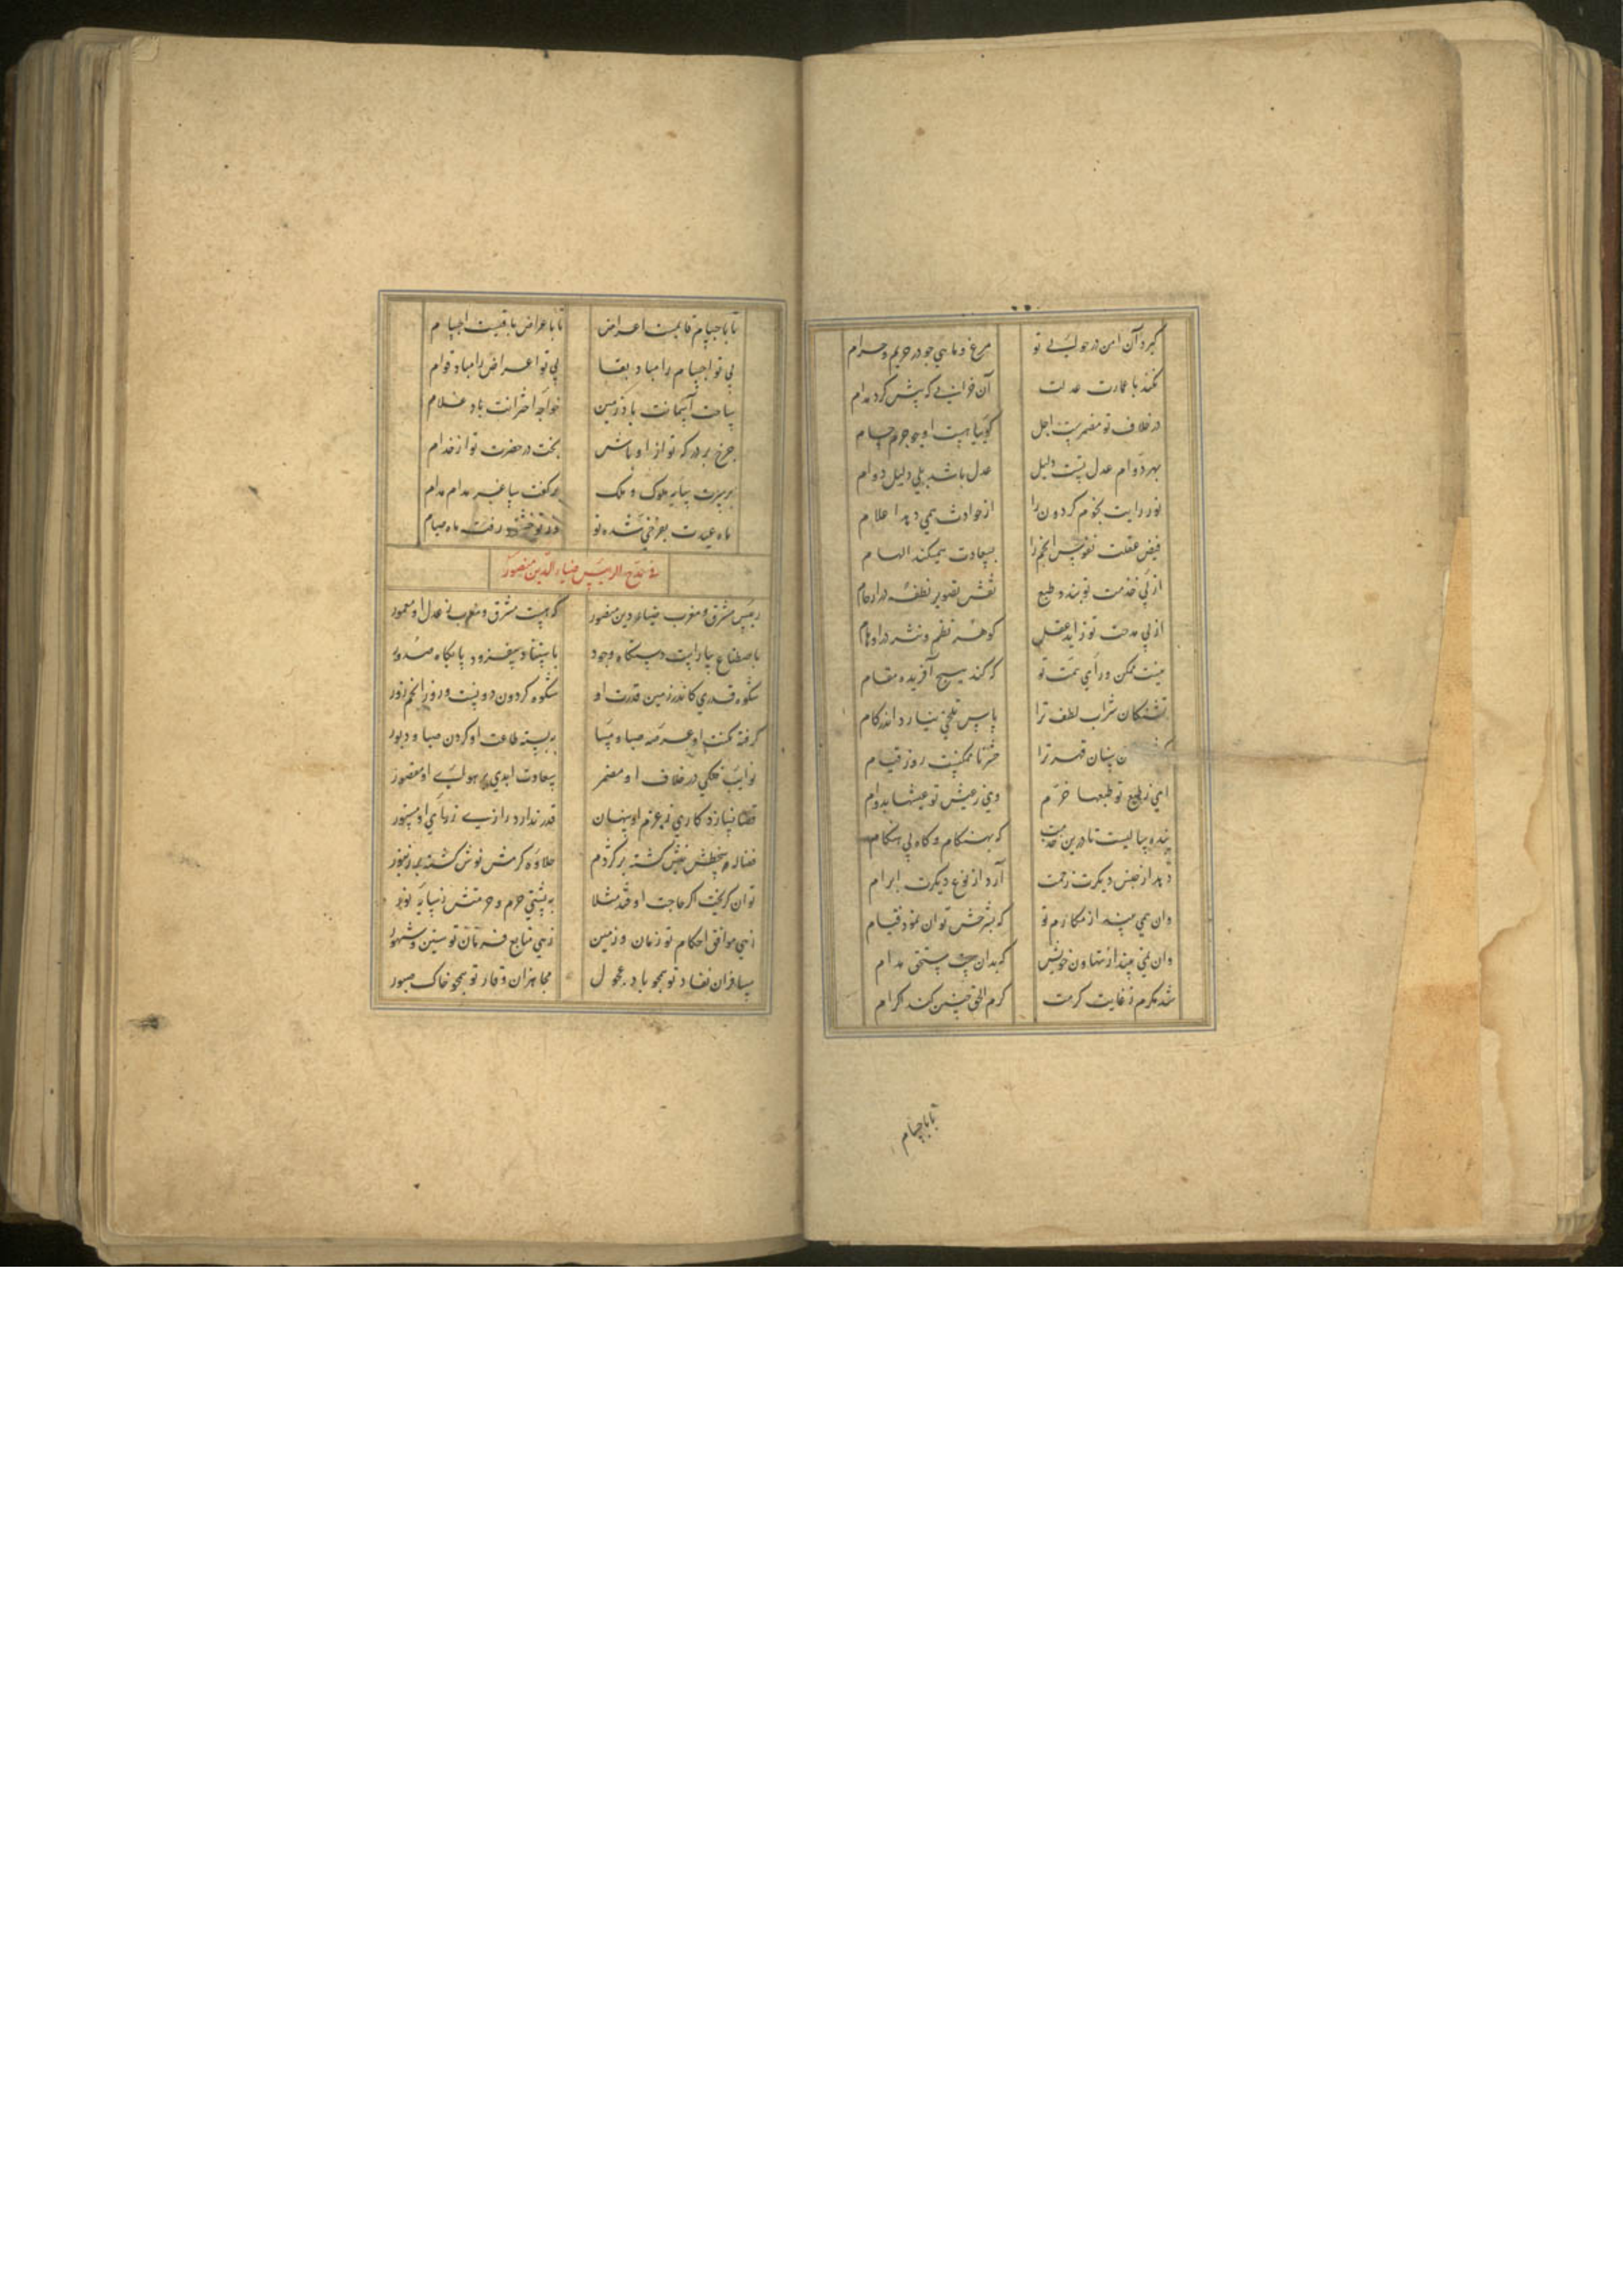 گیرد آن امن در حوالی تو مرغ و ماهی چو در حریم و حرام
نکند با عمارت عدلت آن خرابی که پیش کرد مدام
در خلاف تو مضمرست اجل گوییا هست او چو جرم حسام
بهر دوام عدل تست دلیل عدل باشد بلی دلیل دوام
نور رایت نجوم گردون را از حوادث همی دهد اعلام
فیض عقلت نفوس انجم را بسعادت همیکند الهام
از پی خدمت تو بندد طبع نقش تصویر نطفه در ارحام
از پی مدحت تو زاید عقل گوهر نظم و نثر در اوهام
نیست ممکن ورای همت تو که کند هیچ آفریده مقام
تشنگان شراب لطف ترا یاس تلخی نیارد اندر کام
سنان قهر ترا حشر ناممکنست روز قیام
ای ز طبع تو طبعها خرم وی ز عیش تو عیشها بدوام
بنده سالیست تا درین خدمت که بهنگام و گاه بی هنگام
دهد از جنس دیگرت زحمت آرد از نوع دیگرت ابرام
وان همی بیند از مکارم تو که بشرحش توان نمود قیام
وان نمی بیند از تهاون خویش که بدان هست مستحق مدام
شد مکرم ز غایت کرمت کرم الحق چنین کند اکرام
تا باجسام
تا باجسام قایمست اعراض تا باعراض باقیست اجسام
بی تو اجسام را مباد بقا بی تو اعراض را مباد قوام
ساحت آسمانت باد زمین خواجه اخترانت باد غلام
چرخ بر درگه تو از اوباش بخت در حضرت تو از خدام
بر سرت سایه ملوک و ملک بر کفت ساغر مدام مدام
ماه عیدت بفرخی شده نو وز تو خشنود رفت ماه صیام
فی مدح الرییس ضیاء الدین منصور
رییس مشرق و مغرب ضیاء دین منصور که هست مشرق و مغرب ز عدل او معمور
باصطناع بیاراست دستگاه وجود باستناد بیفزود پایگاه صدور
شکوه قدری کاندر زمین قدرت او شکوه گردون دونست و روز انجم زور
گرفته مکنت او عرصه صباح و مسا ببسته طاعت او گردن صبا و دبور
نوایب فلکی در خلاف او مضمر سعادت ابدی بر هوای او مقصور
قضا نیازد کاری ز عزم او پنهان قدر ندارد رازی ز رای او مستور
فضاله سخطش نیش گشته بر کژدم حلاوه کرمش نوش گشته بر زنبور
توان گریخت اگر حاجت اوفتد مثلا به پشتی حرم و حرمتش ز سایه نور
زهی موافق احکام تو زمان و زمین زهی متابع فرمان تو سنین و شهور
مسافران نفاذ تو همچو باد عجول مجاهزان وقار تو همچو خاک صبور